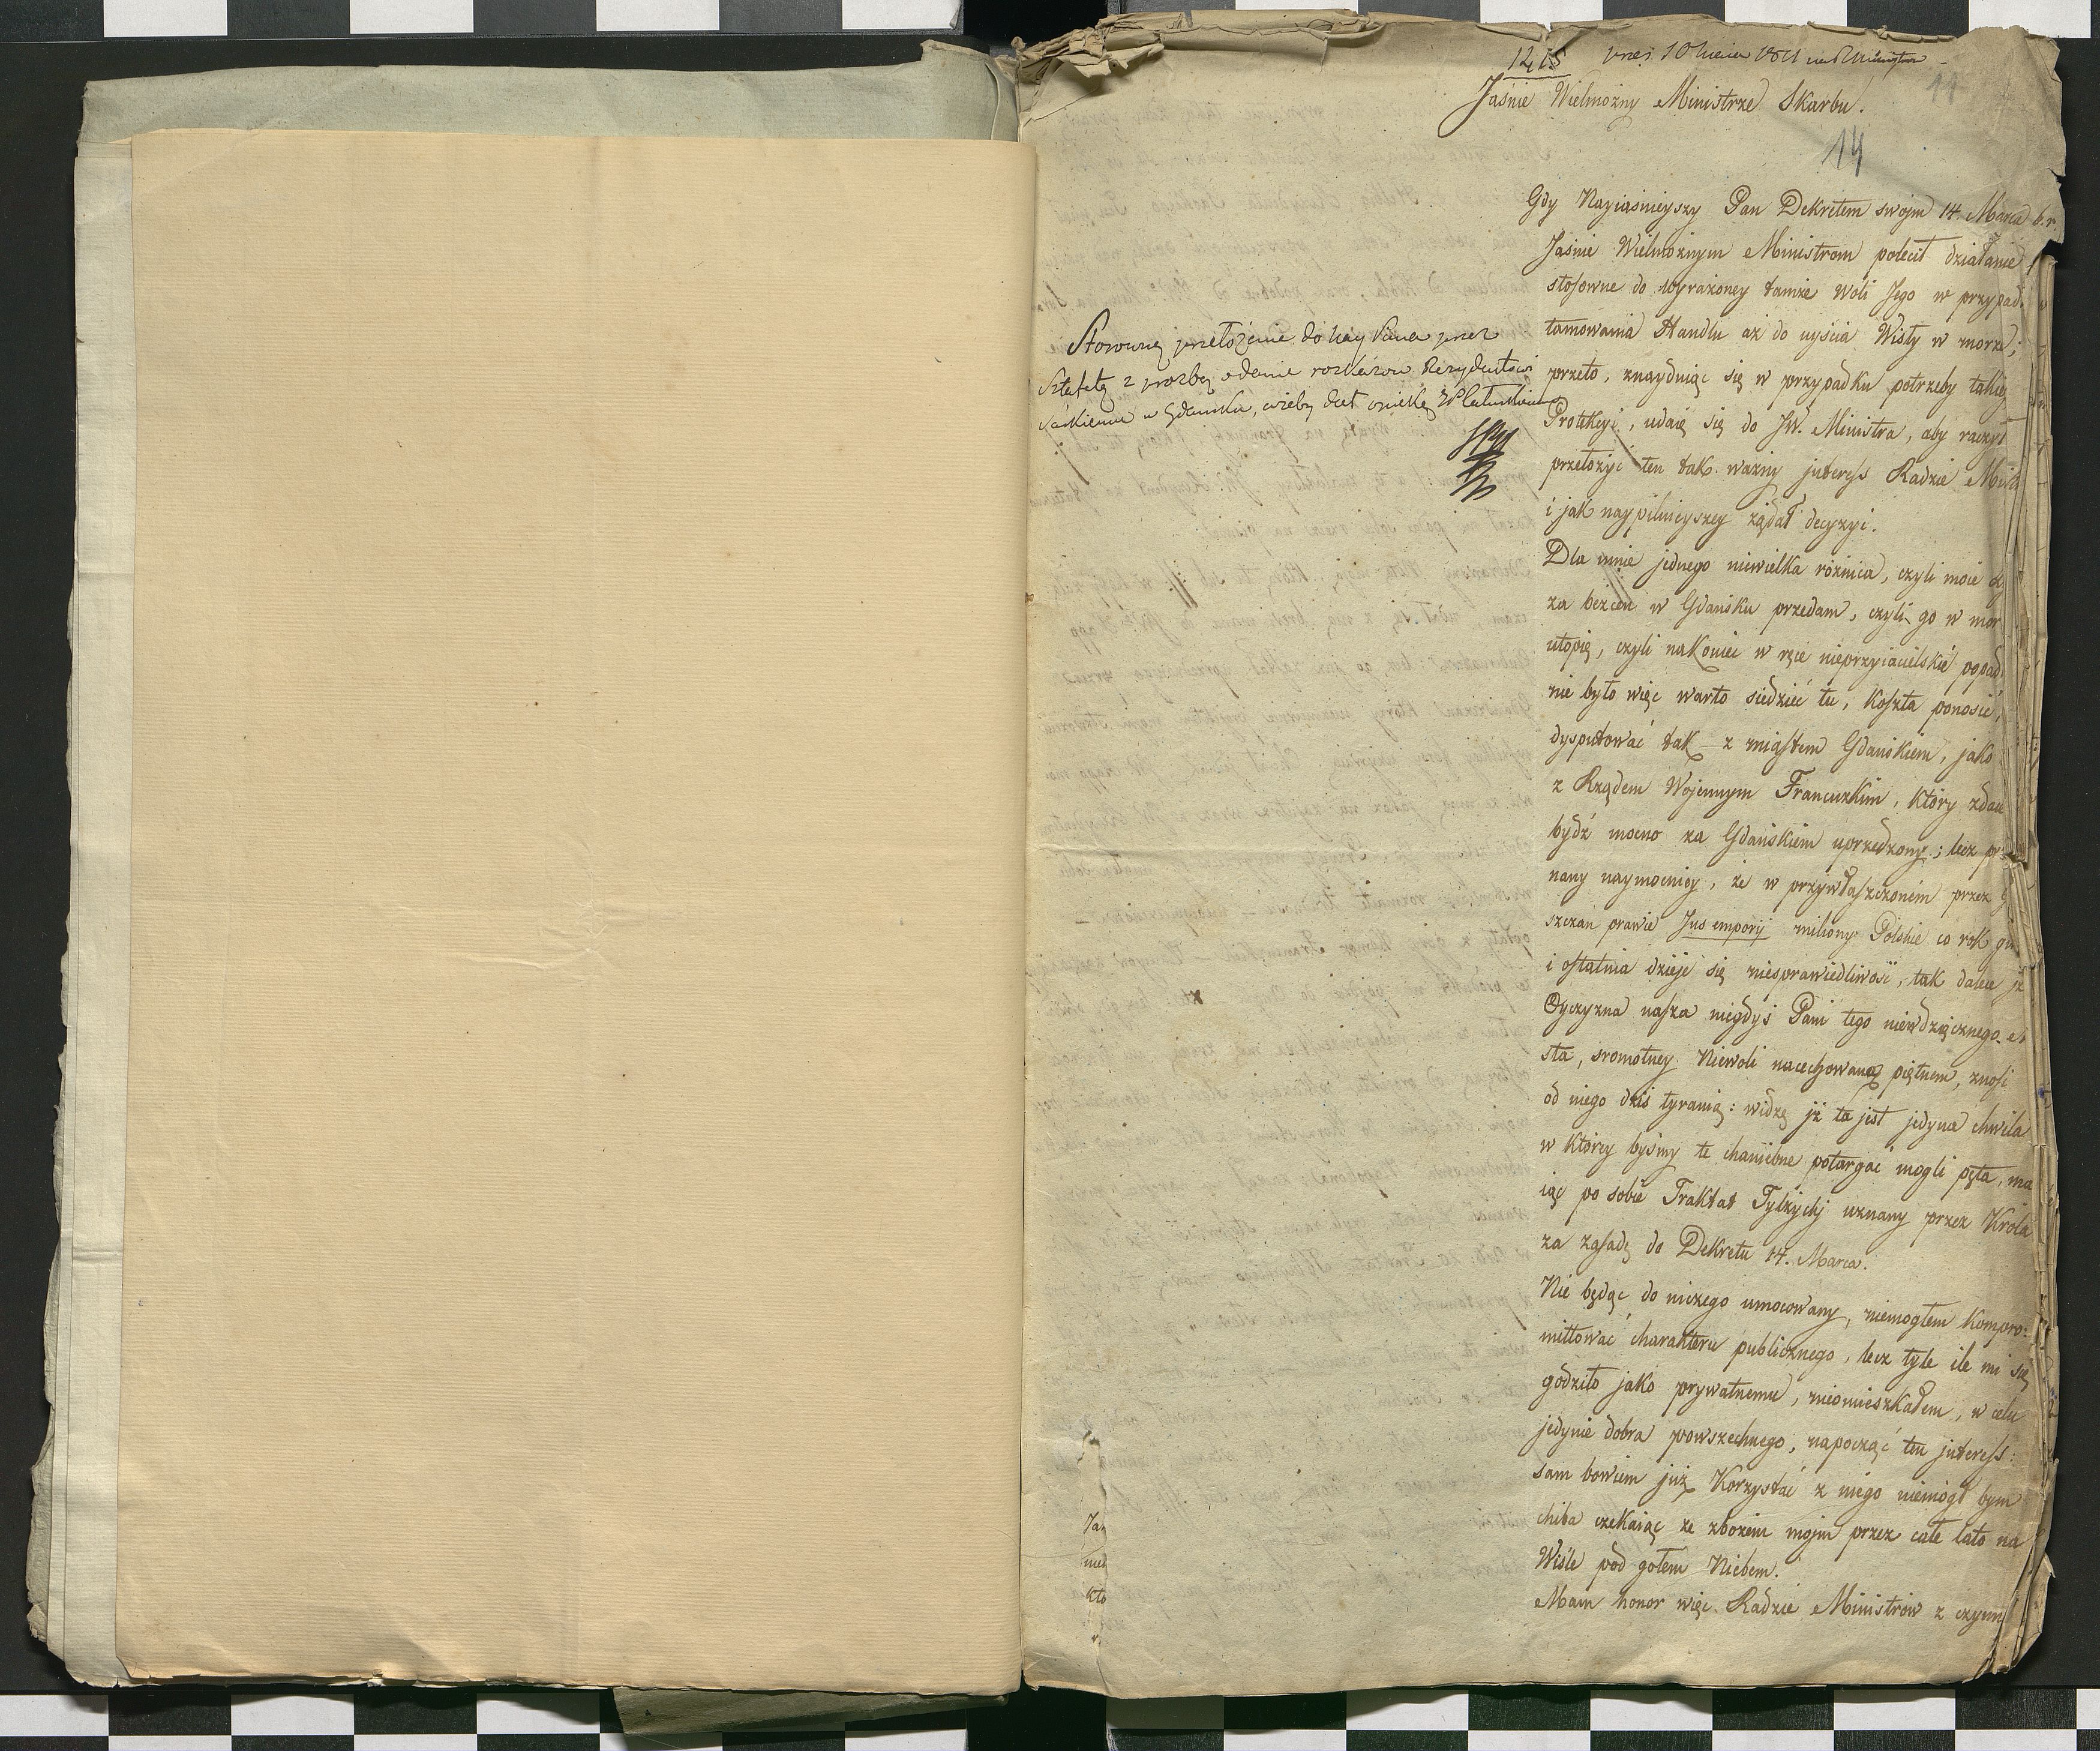 1215
Jaśnie Wielmożny Ministrze Skarbu!
11
14
Gdy Nayiaśnieyszy Pan Dekretem swojm 14. Marca b. r.
Jaśnie Wielmożnym Ministrom polecił działanie
stosowne do wyrażoney tamże woli Jego w przypad.
tamowania Handlu aż do uyścia Wisły w morze;
przeto, znayduiąc się w przypadku potrzeby takiey
Protekcyi, udaię się do JW. Ministra, aby raczył
przełożyć ten tak ważny jnteress Radzie Min
i jak naypilnieyszey żądał decyzyi.
Dla mnie jednego niewielka różnica, czyli moie
za bezcen w Gdańsku przedam, czyli go w mor
utopię, czyli nakoniec w ręce nieprzyiacielskie popad
nie było więc warto siedzieć tu, koszta ponosić,
dysputować tak z miastem Gdańskiem, jako
z Rządem Wojennym Francuzkim, który zdaie
bydź mocno za Gdańskiem uprzedzony; lecz prze
nany naymocniey, że w przywłaszczoném przez G
szczan prawie Jus emporij miliony Polskie co rok gi
i ostatnia dzieje się niesprawiedliwość, tak dalece jż
Oyczyzna nasza niegdyś Pani tego niewdzięcznego
sta, sromotney Niewoli nacechowana piętnem, znosi
od niego dziś tyranią: widzę jż ta jest jedyna chwila
w którey byśmy te haniebne potargać mogli pęta, ma
iąc po sobie Traktat Tylżycki uznany przez Króla
za zasadę do Dekretu 14. Marca.
Nie będąc do niczego umocowany, niemogłem kompro:
mittować charakteru publicznego, lecz tyle ile mi się
godziło jako prywatnemu, nieomieszkałem, w celu
jedynie dobra powszechnego, napocząć ten jnteress:
sam bowiem już korzystać z niego niemógł bym
chiba czekaiąc ze zbożem mojm przez całe lato na
Wiśle pod gołem Niebem.
Mam honor więc Radzie Ministrów z czynn
Stosowne przełożenie do Nay Pana przez
Sztafetę z prozbą o danie rozkazów Rezydentowi
Saskiemu w Gdańsku, ażeby dał opiekę